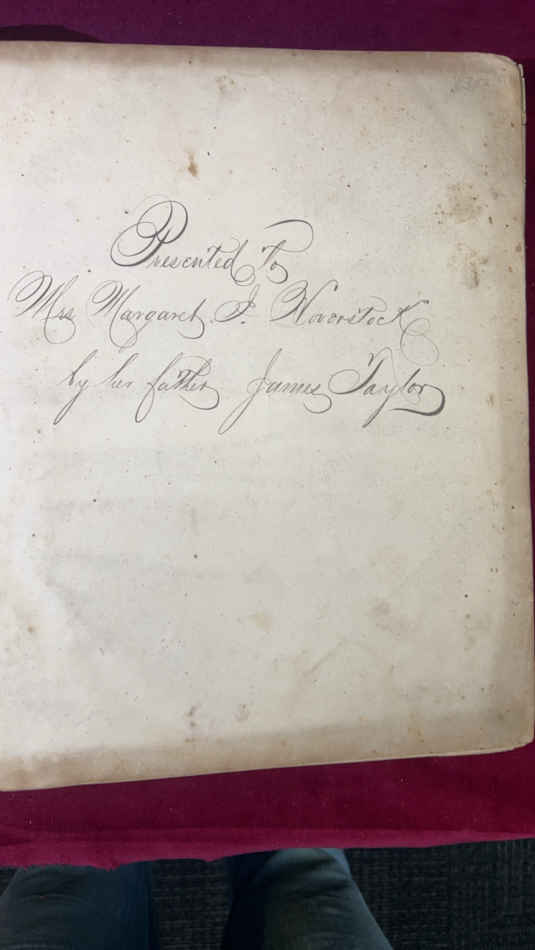 Presented To
Mrs Margaret J. Hoverstock
by her father James Taylor